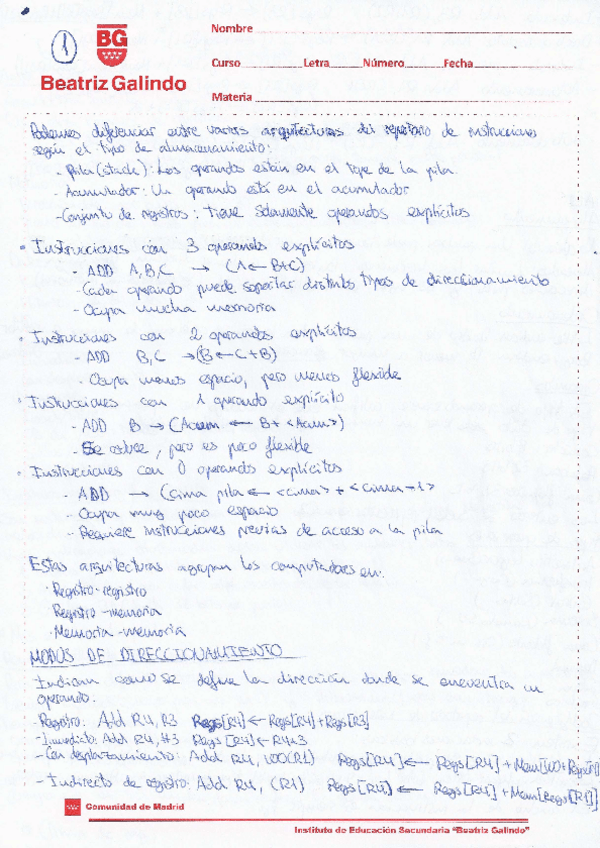 1
BG
Beatriz Galindo
Nombre
Curso Letra Número Fecha
Materia
Podemos diferenciar entre varias arquitecturas del repertorio de instrucciones
según el tipo de almacenamiento:
- Pila (stack): Los operandos están en el tope de la pila.
- Acumulador: Un operando está en el acumulador
- Conjunto de registros: Tiene solamente operandos explícitos
• Instrucciones con 3 operandos explícitos
- ADD A,B,C → (A ← B+C)
- Cada operando puede soportar distintos tipos de direccionamiento
- Ocupa mucha memoria
• Instrucciones con 2 operandos explícitos
- ADD B,C → (B ← C+B)
- Ocupa menos espacio, pero menos flexible
• Instrucciones con 1 operando explícito
- ADD B → (Acum ← B + <Acum>)
- Se cubre, pero es poco flexible
• Instrucciones con 0 operandos explícitos
- ADD → (cima pila ← <cima> + <cima-1>
- Ocupa muy poco espacio
- Requiere instrucciones previas de acceso a la pila
Estas arquitecturas agrupan los computadores en:
· Registro-registro
Registro-memoria
· Memoria-memoria
MODOS DE DIRECCIONAMIENTO
- Indican como se define la dirección donde se encuentra un
operando.
- Registro: Add R4,R3 Regs[R4] ← Regs[R4]+Regs[R3]
- Inmediato: Add R4,#3 Regs[R4] ← R4+3
- Con desplazamiento: Add R4, 100(R1) Regs[R4] ← Regs[R4] + Mem[100+Regs[R1]
- Indirecto de registro: Add R4, (R1) Regs[R4] ← Regs[R4] + Mem[Regs[R1]]
Comunidad de Madrid
Instituto de Educación Secundaria "Beatriz Galindo"